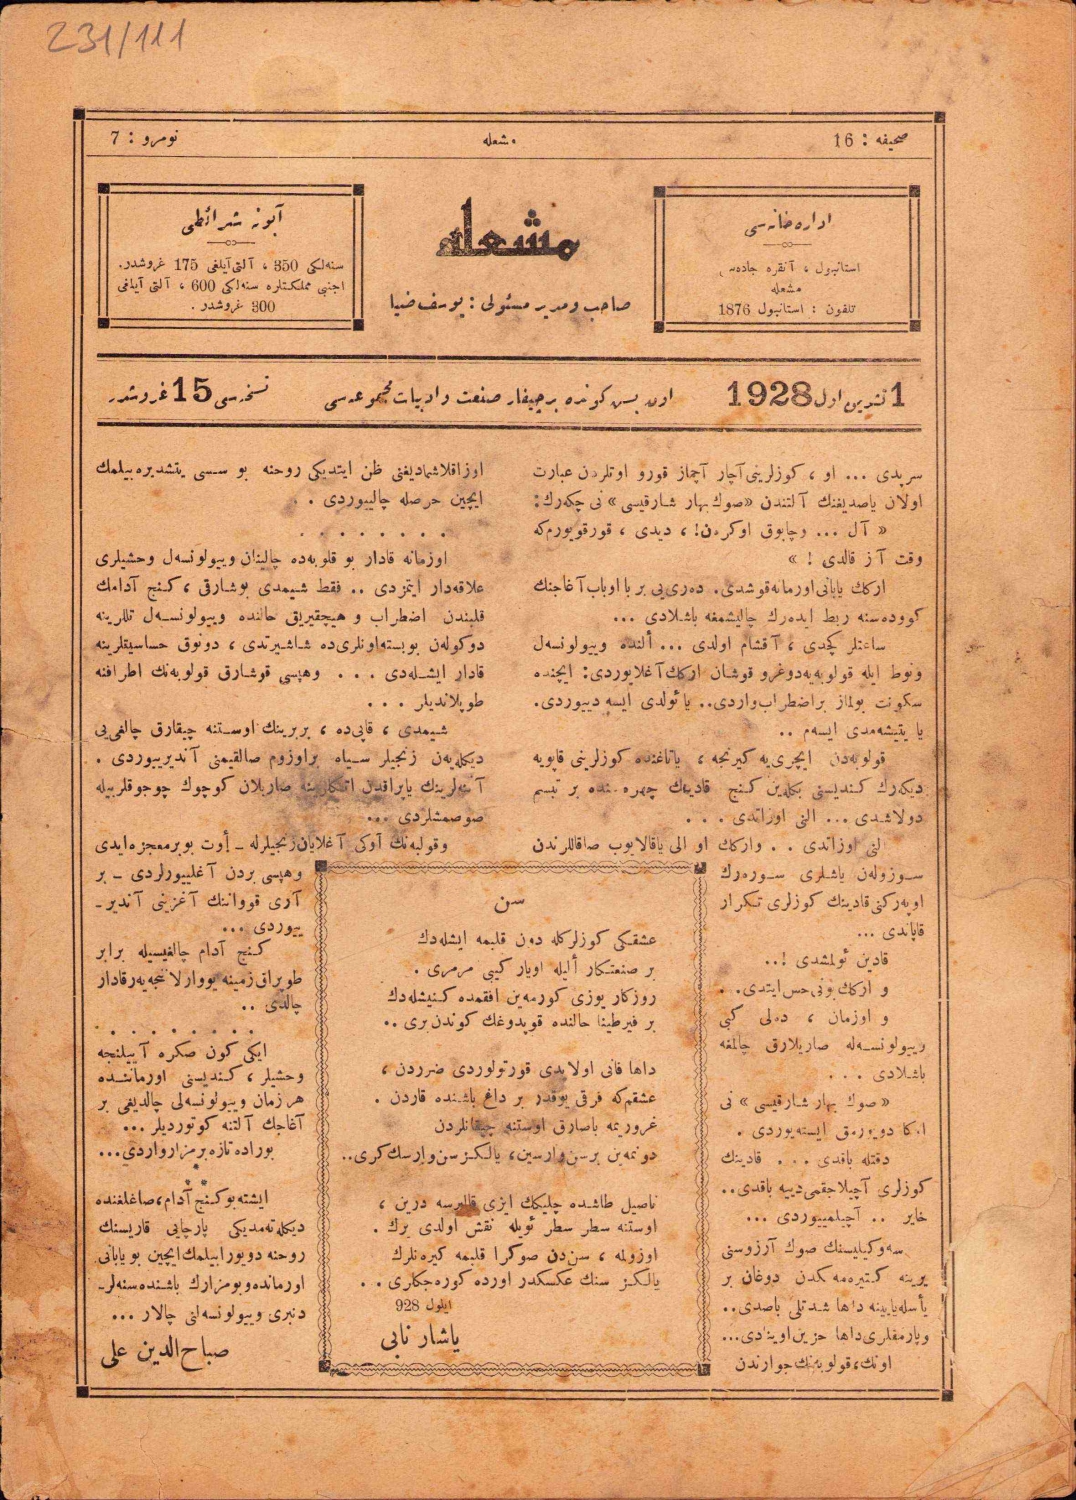 231/111
صحیفه : 16
مشعله
نومرو : 7
اداره خانه سی
استانبول ، آنقره جاده سی
مشعله
تلفون : استانبول 1876
مشعله
صاحب و مدیر مسئولی : یوسف ضیا
آبونه شرائطی
سنه لکی 350 ، آلتی آیلغی 175 غروشدر.
اجنبی مملکتلره سنه لکی 600 ، آلتی آیلغی
300 غروشدر .
1 تشرین اول 1928
اون بش کونده بر چیقار صنعت و ادبیات مجموعه سی
نسخه سی 15 غروشدر
سرپدی ... او ، کوزلرینی آچار آچماز قورو اوتلردن عبارت
اولان یاصدیغنك آلتندن «صوك بهار شارقیسی» نی چکه رك:
« آل ... وچابوق اوکرهن! ، دیدی ، قورقویورم که
وقت آز قالدی ! »
ارکك یابانی اورمانه قوشدی. ده ری یی بر با اوباب آغاجنك
کووده سنه ربط ایده رك چالیشمغه باشلادی ...
ساعتلر کچدی ، آقشام اولدی ... ألنده وییولونسه ل
ونوط ایله قولوبه یه دوغرو قوشان ارکك آغلایوردی: ایچنده
سکونت بولماز بر اضطراب واردی.. یا ئولدی ایسه دییوردی.
یا یتیشه مدی ایسه م ..
قولوبه دن ایچری یه کیرنجه ، یاتاغنده کوزلرینی قاپویه
دیکه رك کندیسنی بکله ین کنج قادینك چهره سنده بر تبسم
دولاشدی ... النی اوزاتدی . . .
النی اوزاتدی . . وارکك او الی یاقالایوب صاقاللرندن
سوزوله ن یاشلری سوره رك
اوپه رکن قادینك کوزلری تکرار
قاپاندی ...
قادین ئولمشدی !..
و ارکك بونی حس ایتدی. .
و اوزمان ، ده لی کبی
وییولونسه له صاریلارق چالمغه
باشلادی . . .
« صوك بهار شارقیسی » نی
اوکا دویورمق ایسته یوردی .
دقتله باقدی . . . قادینك
کوزلری آچیلاجقمی دییه باقدی..
خایر .. آچیلمییوردی ...
سه وکیلیسنك صوك آرزوسنی
یرینه کتیره مه مکدن دوغان بر
یأسله یایینه داها شدتلی باصدی..
وپارمقلری داها حزین اوینادی...
اونك، قولوبه نك جوارندن
اوزاقلاشمادیغنی ظن ایتدیکی روحنه بو سسی یتشدیره بیلمك
ایچین حرصله چالییوردی . .
. . . . . . . .
اوزمانه قادار بو قلوبه ده چالینان وییولونسه ل وحشیلری
علاقه دار ایتمزدی .. فقط شیمدی بوشارقی ، کنج آدامك
قلبندن اضطراب و هیچقیریق حالنده وییولونسه ل تللرینه
دوکوله ن بو بسته اونلری ده شاشیرتدی ، دونوق حساسیقلرینه
قادار ایشله دی . . . وهپسی قوشارق قولوبه نك اطرافنه
طوپلاندیلر . . .
شیمدی ، قاپی ده ، بربرینك اوستنه چیقارق چالغی یی
دیکله یه ن زنجیلر سیاه بر اوزوم صالقیمنی آندیرییوردی .
آننه لرینك یاپراقدن اتکلرینه صاریلان کوچوك چوجوقلر بیله
صوصمشلردی ...
وقولبه نك آوکی آغلایان زنجیلرله ـ أوت بو بر معجزه ایدی
وهپسی بردن آغلییورلردی ـ بر
آری قوواننك آغزینی آندیر-
ییوردی ...
کنج آدام چالغیسیله برابر
طوپراق زمینه یووارلانجه یه رقادار
چالدی ..
. . . . . . . .
ایکی کون صکره آییلنجه
وحشیلر ، کندیسنی اورمانده
هر زمان وییولونسه لی چالدیغی بر
آغاجك آلتنه کوتوردیلر ...
بوراده تازه بر مزار واردی...
* * *
ایشته بو کنج آدام، صاغلغنده
دیکله ته مدیکی پارچایی قاریسنك
روحنه دویورابیلمك ایچین بو یابانی
اورمانده و بو مزارك باشنده سنه لر-
دنبری وییولونسه لنی چالار ...
صباح الدین علی
سن
عشقکی کوزلرکله دون قلبمه ایشله دك
بر صنعتکار ألیله اویار کیبی مرمری .
روزکار یوزی کورمه ین افقمده کنیشله دك
بر فیرطینا حالنده قوپدوغك کوندن بری ..
داها فانی اولایدی قورتولوردی ضرردن ،
عشقم که فرقی یوقدر بر داغ باشنده قاردن .
غروریمه باصارق اوستنه چیقانلردن
دونمه ین بر سن وارسین، یالکز سن وارسك کری..
ناصیل طاشده چلیکك ایزی قالیرسه درین ،
اوستنه سطر سطر ئویله نقش اولدی یرك .
اوزولمه ، سن دن صوکرا قلبمه کیره نلرك
یالکز سنك عکسکدر اورده کوره جکلری . .
ایلول 928
یاشار نابی